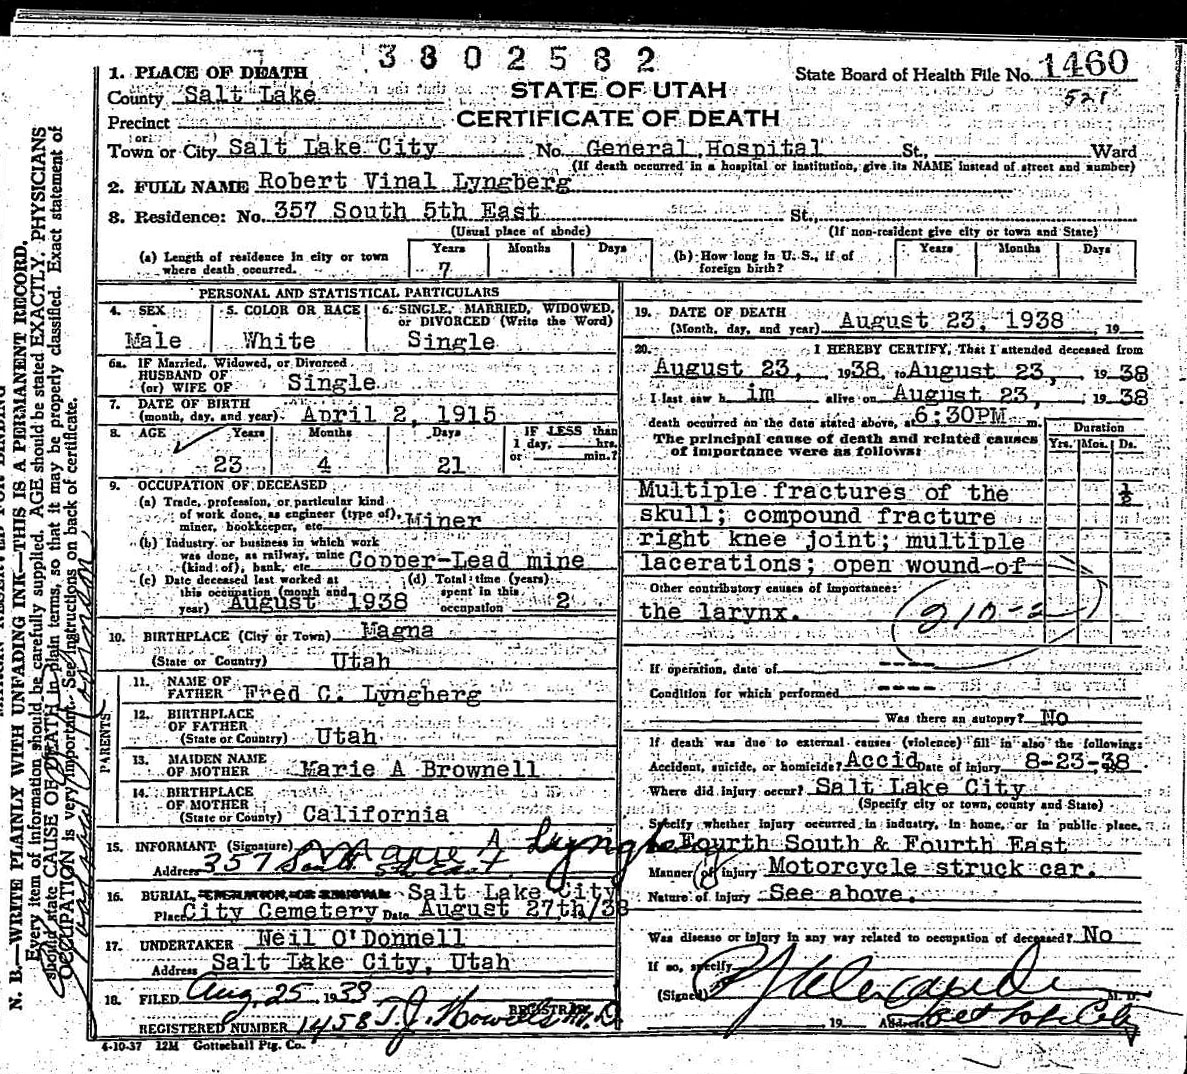 3802582
1. PLACE OF DEATH
State Board of Health File No. 1460
County Salt Lake
STATE OF UTAH
521
Precinct
CERTIFICATE OF DEATH
or
Town or City Salt Lake City No. General Hospital St., Ward
(If death occurred in a hospital or institution, give its NAME instead of street and number)
2. FULL NAME Robert Vinal Lyngberg
3. Residence: No. 357 South 5th East St.,
(Usual place of abode) (If non-resident give city or town and State)
(a) Length of residence in city or town where death occurred. Years 7 Months Days
(b) How long in U. S., if of foreign birth? Years Months Days
PERSONAL AND STATISTICAL PARTICULARS
4. SEX
Male
5. COLOR OR RACE
White
6. SINGLE, MARRIED, WIDOWED,
or DIVORCED (Write the Word)
Single
6a. IF Married, Widowed, or Divorced
HUSBAND OF
(or) WIFE OF Single
7. DATE OF BIRTH
(month, day, and year) April 2, 1915
8. AGE Years Months Days IF LESS than
1 day, hrs.
or min.?
23 4 21
9. OCCUPATION OF DECEASED
(a) Trade, profession, or particular kind
of work done, as engineer (type of),
miner, bookkeeper, etc. Miner
(b) Industry or business in which work
was done, as railway, mine
(kind of), bank, etc. Copper-Lead mine
(c) Date deceased last worked at
this occupation (month and
year) August 1938
(d) Total time (years)
spent in this
occupation 2
10. BIRTHPLACE (City or Town) Magna
(State or Country) Utah
PARENTS
11. NAME OF
FATHER Fred C. Lyngberg
12. BIRTHPLACE
OF FATHER
(State or Country) Utah
13. MAIDEN NAME
OF MOTHER Marie A Brownell
14. BIRTHPLACE
OF MOTHER
(State or Country) California
15. INFORMANT (Signature) Marie A Lyngb
Address 357 South 5th East
16. BURIAL, CREMATION, OR REMOVAL Salt Lake City
Place City Cemetery Date August 27th/38
17. UNDERTAKER Neil O'Donnell
Address Salt Lake City, Utah
18. FILED Aug. 25 1938
REGISTRAR
REGISTERED NUMBER 1458 T.J. Howells M.D.
4-10-37 12M Gottschall Ptg. Co.
19. DATE OF DEATH
(Month, day, and year) August 23, 1938, 19
20. I HEREBY CERTIFY, That I attended deceased from
August 23, 1938, to August 23, 1938
I last saw h im alive on August 23, 1938
death occurred on the date stated above, at 6:30PM m.
The principal cause of death and related causes
of importance were as follows:
Duration
Yrs. Mos. Ds.
Multiple fractures of the 1/2
skull; compound fracture
right knee joint; multiple
lacerations; open wound of
Other contributory causes of importance:
the larynx.
210-2
If operation, date of ----
Condition for which performed ----
Was there an autopsy? No
If death was due to external causes (violence) fill in also the following:
Accident, suicide, or homicide? Accid Date of injury 8-23-38
Where did injury occur? Salt Lake City
(Specify city or town, county and State)
Specify whether injury occurred in industry, in home, or in public place.
Fourth South & Fourth East
Manner of injury Motorcycle struck car.
Nature of injury See above.
Was disease or injury in any way related to occupation of deceased? No
If so, specify
(Signed) M. D.
19 Address Salt Lake City
N. B.—WRITE PLAINLY WITH UNFADING INK—THIS IS A PERMANENT RECORD.
Every item of information should be carefully supplied. AGE should be stated EXACTLY. PHYSICIANS
should state CAUSE OF DEATH in plain terms, so that it may be properly classified. Exact statement of
OCCUPATION is very important. See instructions on back of certificate.